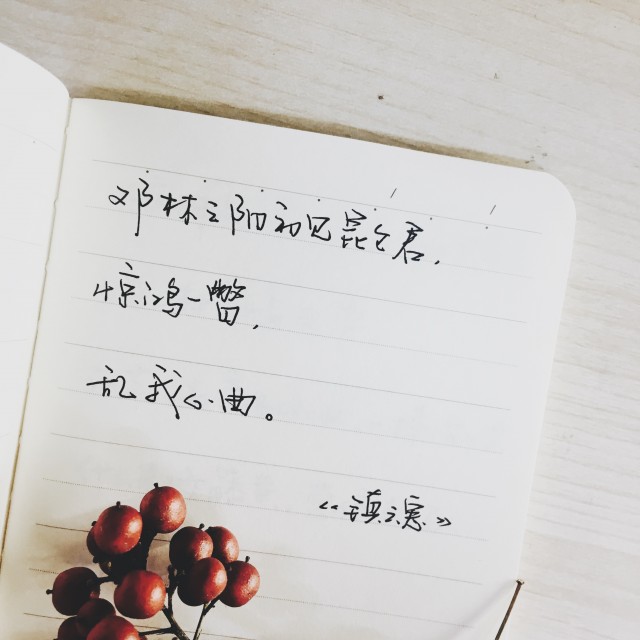 邓林之阴初见昆仑君,
惊鸿一瞥,
乱我心曲。
《镇魂》